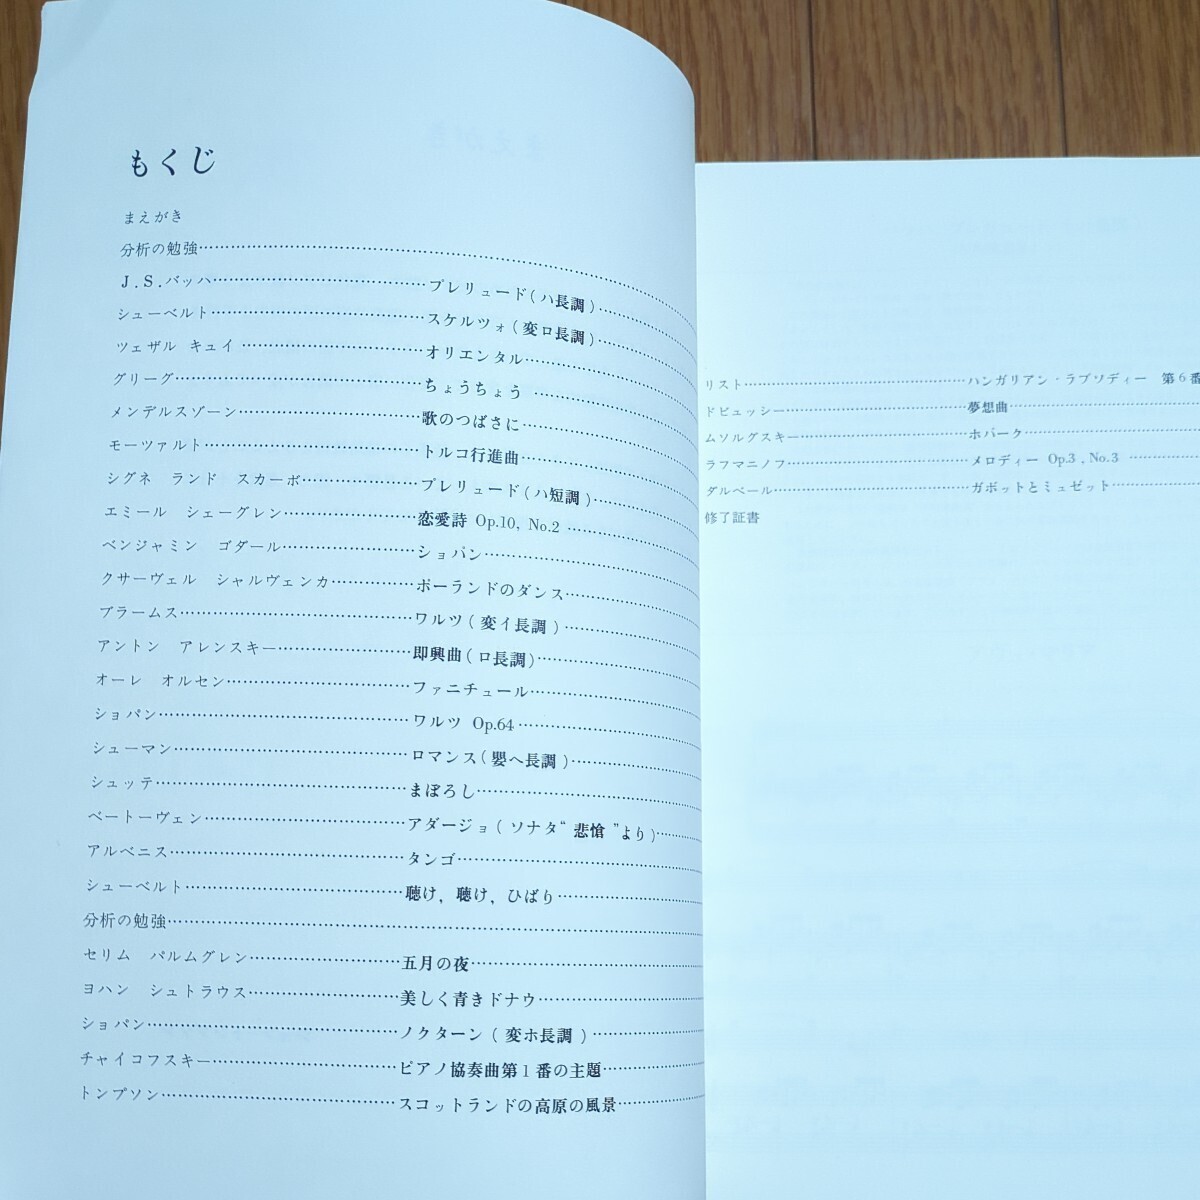 もくじ
まえがき
分析の勉強
J.S.バッハ プレリュード(ハ長調)
シューベルト スケルツォ(変ロ長調)
ツェザル キュイ オリエンタル
グリーグ ちょうちょう
メンデルスゾーン 歌のつばさに
モーツァルト トルコ行進曲
シグネ ランド スカーボ プレリュード(ハ短調)
エミール シェーグレン 恋愛詩 Op.10, No.2
ベンジャミン ゴダール ショパン
クサーヴェル シャルヴェンカ ポーランドのダンス
ブラームス ワルツ(変イ長調)
アントン アレンスキー 即興曲(ロ長調)
オーレ オルセン ファニチュール
ショパン ワルツ Op.64
シューマン ロマンス(嬰ヘ長調)
シュッテ まぼろし
ベートーヴェン アダージョ(ソナタ“悲愴”より)
アルベニス タンゴ
シューベルト 聴け,聴け,ひばり
分析の勉強
セリム パルムグレン 五月の夜
ヨハン シュトラウス 美しく青きドナウ
ショパン ノクターン(変ホ長調)
チャイコフスキー ピアノ協奏曲第1番の主題
トンプソン スコットランドの高原の風景
リスト ハンガリアン・ラプソディー 第6番
ドビュッシー 夢想曲
ムソルグスキー ホパーク
ラフマニノフ メロディー Op.3, No.3
ダルベール ガボットとミュゼット
修了証書